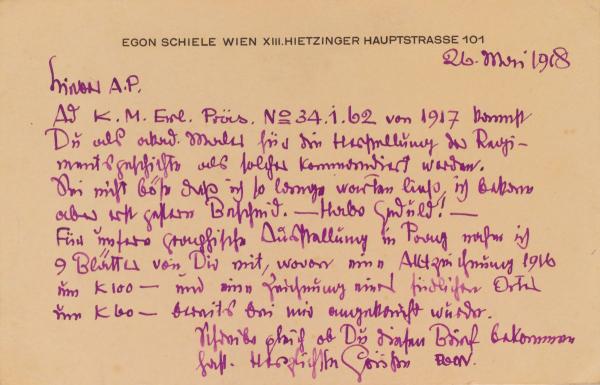 EGON SCHIELE WIEN XIII. HIETZINGER HAUPTSTRASSE 101
26. Mai 1918
Lieber A.P.
Ad K.M. Erl. Präs. No 34.1.62 von 1917 kannst
Du als akad. Maler für die Herstellung der Regi-
mentsgeschichte als solcher kommandiert werden.
Sei nicht böse daß ich so lange warten ließ, ich bekam
aber erst gestern Bescheid. — Habe Geduld! —
Für unsere graphische Ausstellung in Prag nahm ich
9 Blätter von Dir mit, wovon eine Aktzeichnung 1916
um K 100 — und eine Zeichnung eines südlichen Ortes
um K 60 — bereits bei mir angekauft wurde.
Schreibe gleich ob Du diesen Brief bekommen
hast. Herzlichste Grüße